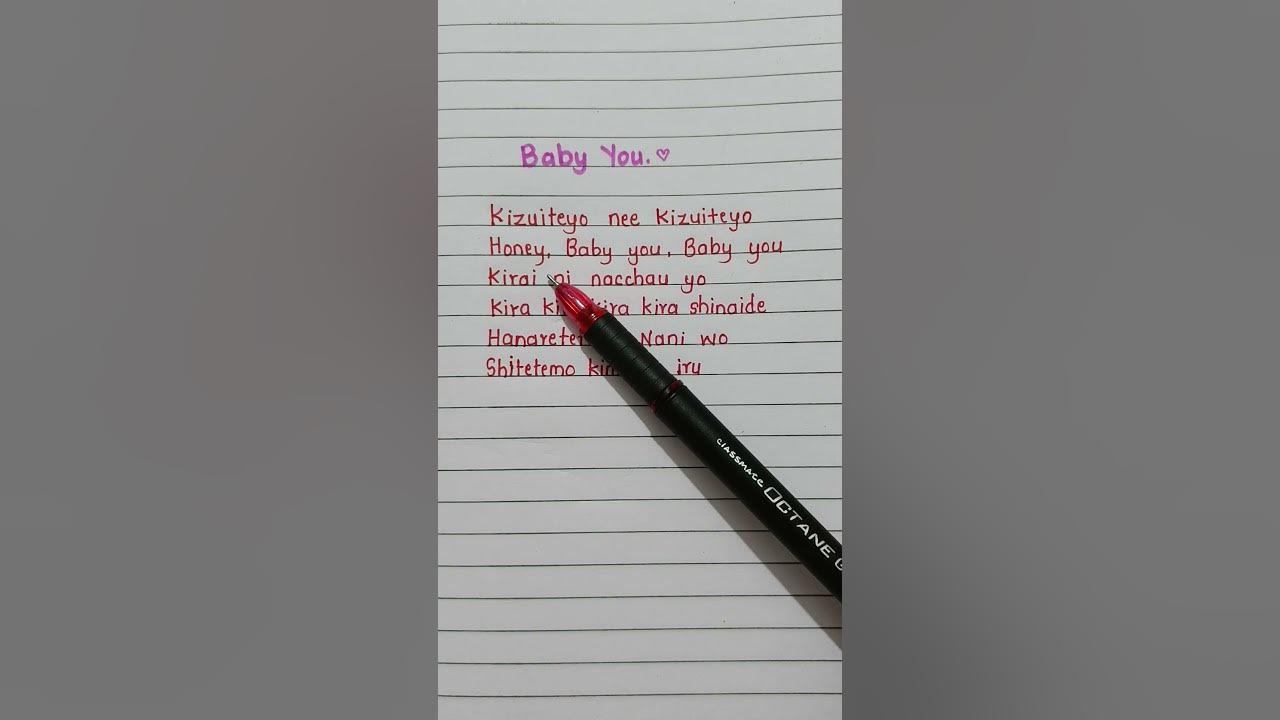 Baby You.♡
Kizuiteyo nee Kizuiteyo
Honey, Baby you, Baby you
Kirai ni nacchau yo
Kira kira kira shinaide
Nani wo
Shitetemo iru
classmate OCTANE